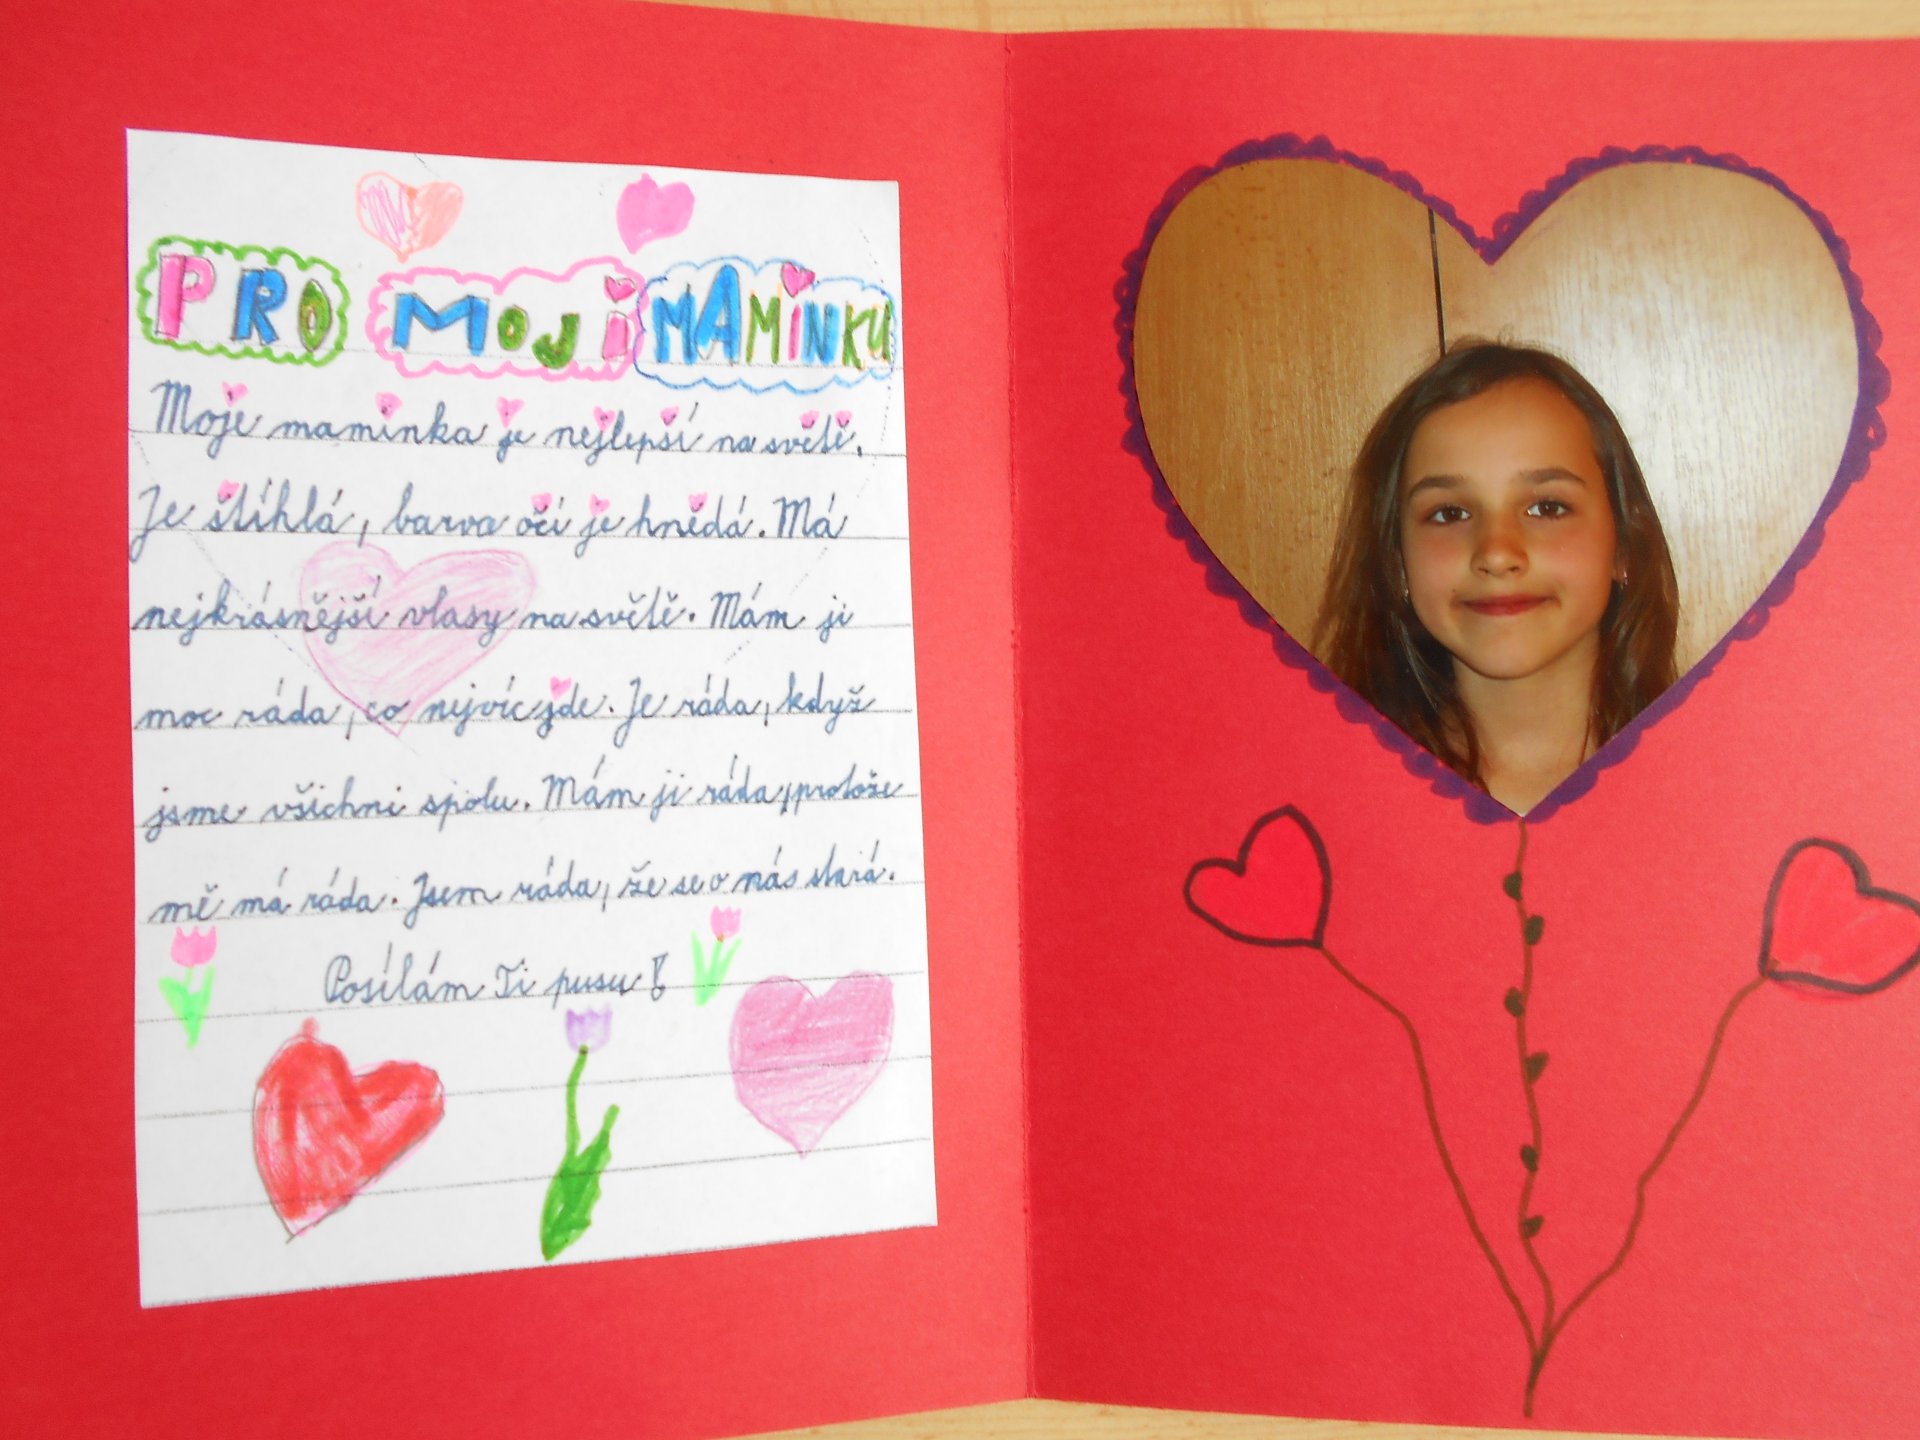 PRO MOJI MAMINKU
Moje maminka je nejlepší na světě.
Je štíhlá, barva očí je hnědá. Má
nejkrásnější vlasy na světě. Mám ji
moc ráda, co nejvíc jde. Je ráda, když
jsme všichni spolu. Mám ji ráda, protože
mě má ráda. Jsem ráda, že se o nás stará.
Posílám Ti pusu!